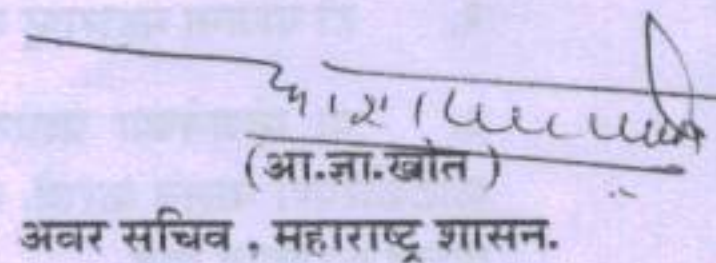 (आ.ज्ञा.खोत )
अवर सचिव , महाराष्ट्र शासन.